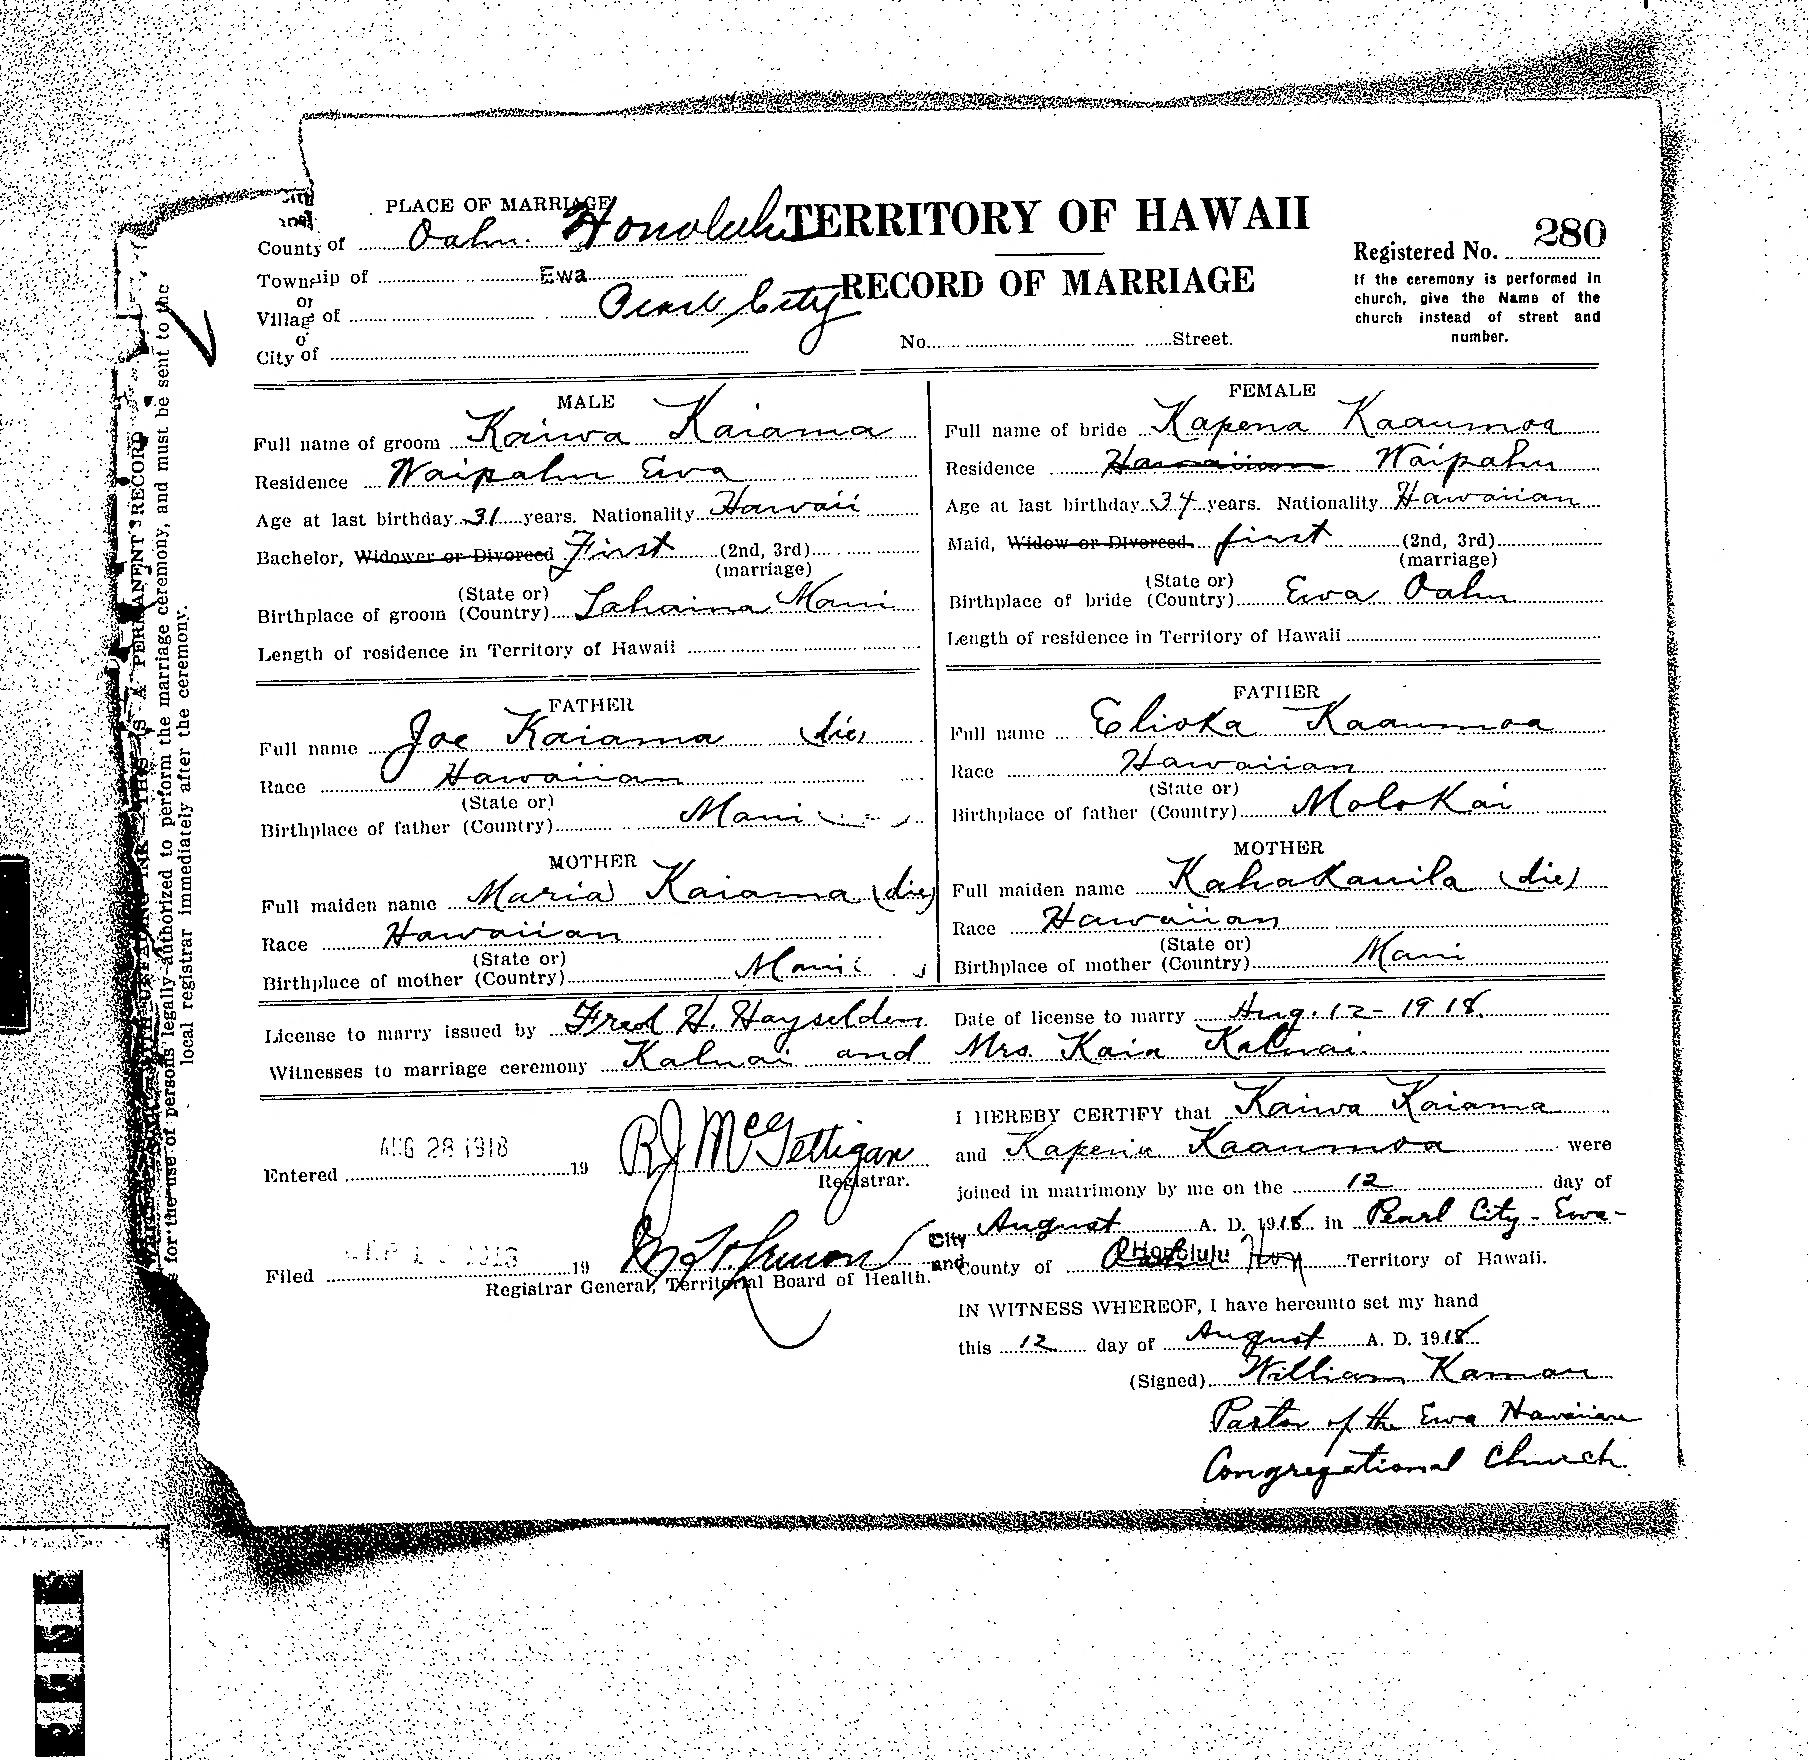 PLACE OF MARRIAGE
TERRITORY OF HAWAII
County of Oahu. Honolulu
280
Registered No.
Township of Ewa
RECORD OF MARRIAGE
If the ceremony is performed in
church, give the Name of the
church instead of street and
number.
or
Village of Pearl City
or
City of
No. Street.
MALE
Full name of groom Kaiwa Kaiama
Residence Waipahu Ewa
Age at last birthday 31 years. Nationality Hawaii
Bachelor, Widower or Divorced First (2nd, 3rd)
(marriage)
(State or)
Birthplace of groom (Country) Lahaina Maui
Length of residence in Territory of Hawaii
FEMALE
Full name of bride Kapena Kaaumoa
Residence Hawaiian Waipahu
Age at last birthday 34 years. Nationality Hawaiian
Maid, Widow or Divorced. first (2nd, 3rd)
(marriage)
(State or)
Birthplace of bride (Country) Ewa Oahu
Length of residence in Territory of Hawaii
FATHER
Full name Joe Kaiama (die)
Race Hawaiian
(State or)
Birthplace of father (Country) Maui
MOTHER
Full maiden name Maria Kaiama (die)
Race Hawaiian
(State or)
Birthplace of mother (Country) Maui
FATHER
Full name Elioka Kaaumoa
Race Hawaiian
(State or)
Birthplace of father (Country) Molokai
MOTHER
Full maiden name Kahakauila (die)
Race Hawaiian
(State or)
Birthplace of mother (Country) Maui
License to marry issued by Fred H. Hayselden Date of license to marry Aug. 12 - 1918
Witnesses to marriage ceremony Kaluai and Mrs. Kaia Kaluai.
Entered AUG 28 1918 19
R J McGettigan
Registrar.
Filed 19
Registrar General, Territorial Board of Health.
I HEREBY CERTIFY that Kaiwa Kaiama
and Kapena Kaaumoa were
joined in matrimony by me on the 12 day of
August A. D. 1918 in Pearl City - Ewa -
City
and County of Honolulu Hon Territory of Hawaii.
IN WITNESS WHEREOF, I have hereunto set my hand
this 12 day of August A. D. 1918
(Signed) William Kamau
Pastor of the Ewa Hawaiian
Congregational Church.
THIS IS A PERMANENT RECORD
for the use of persons legally authorized to perform the marriage ceremony, and must be sent to the
local registrar immediately after the ceremony.